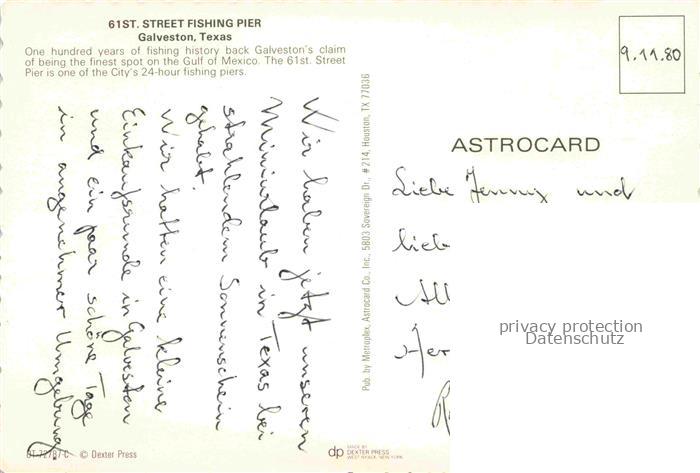 61ST. STREET FISHING PIER
Galveston, Texas
One hundred years of fishing history back Galveston's claim
of being the finest spot on the Gulf of Mexico. The 61st. Street
Pier is one of the City's 24-hour fishing piers.
Wir haben jetzt unseren
Miniurlaub in Texas bei
strahlendem Sonnenschein
gehabt.
Wir hatten eine kleine
Einkaufsrunde in Galveston
und ein paar schöne Tage
in angenehmer Umgebung.
© Dexter Press
Pub. by Metroplex, Astrocard Co., Inc., 5803 Sovereign Dr., #214, Houston, TX 77036
dp MADE BY
DEXTER PRESS
WEST NYACK, NEW YORK
9.11.80
ASTROCARD
Liebe Jenny und
lieb
All
Her
privacy protection
Datenschutz